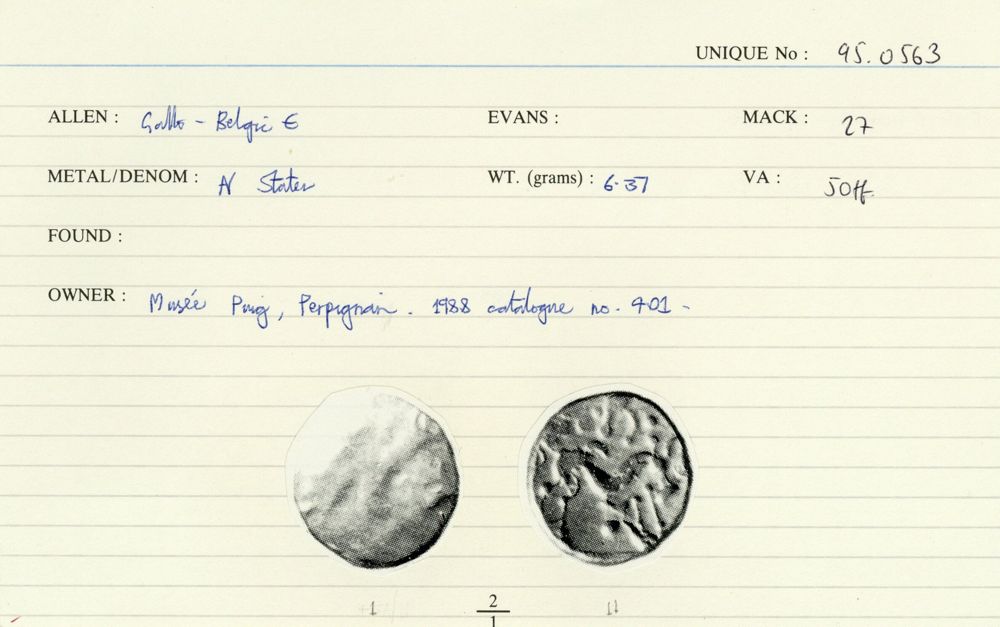 UNIQUE No : 95.0563
ALLEN : Gallo-Belgic E EVANS : MACK : 27
METAL/DENOM : AV Stater WT. (grams) : 6.37 VA : 50ff.
FOUND :
OWNER : Musée Puig, Perpignan. 1988 catalogue no. 401 -
2
1